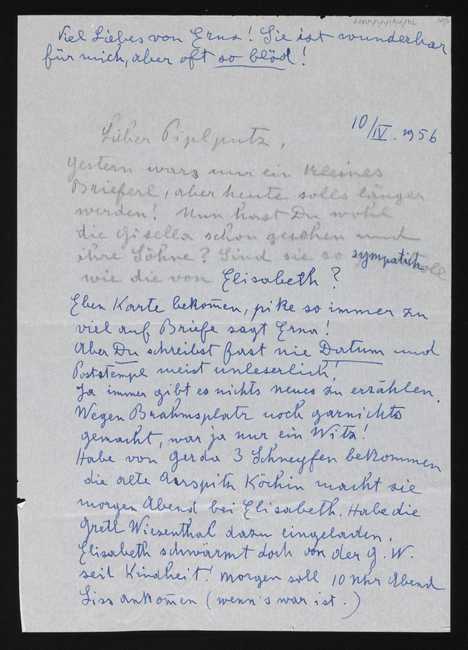 Viel Liebes von Erna! Sie ist wunderbar
für mich, aber oft so blöd!
10/IV. 1956
Lieber Piplputz,
Gestern wars nur ein kleines
Brieferl, aber heute solls länger
werden! Nun hast Du wohl
die Gisella schon gesehen und
ihre Söhne? Sind sie so sympatisch
wie die von Elisabeth?
Eben Karte bekom̄en, pike so immer zu
viel auf Briefe sagt Erna!
Aber Du schreibst fast nie Datum und
Poststempel meist unleserlich!
Ja immer gibt es nichts neues zu erzählen.
Wegen Brahmsplatz noch garnichts
gemacht, war ja nur ein Witz!
Habe von Gerda 3 Schnepfen bekommen
die alte Köchin macht sie
morgen Abend bei Elisabeth. Habe die
Gretl Wiesenthal dazu eingeladen.
Elisabeth schwärmt doch von der G. W.
seit Kindheit! Morgen soll 10 Uhr Abend
Liss ankom̄en (wenn's war ist.)